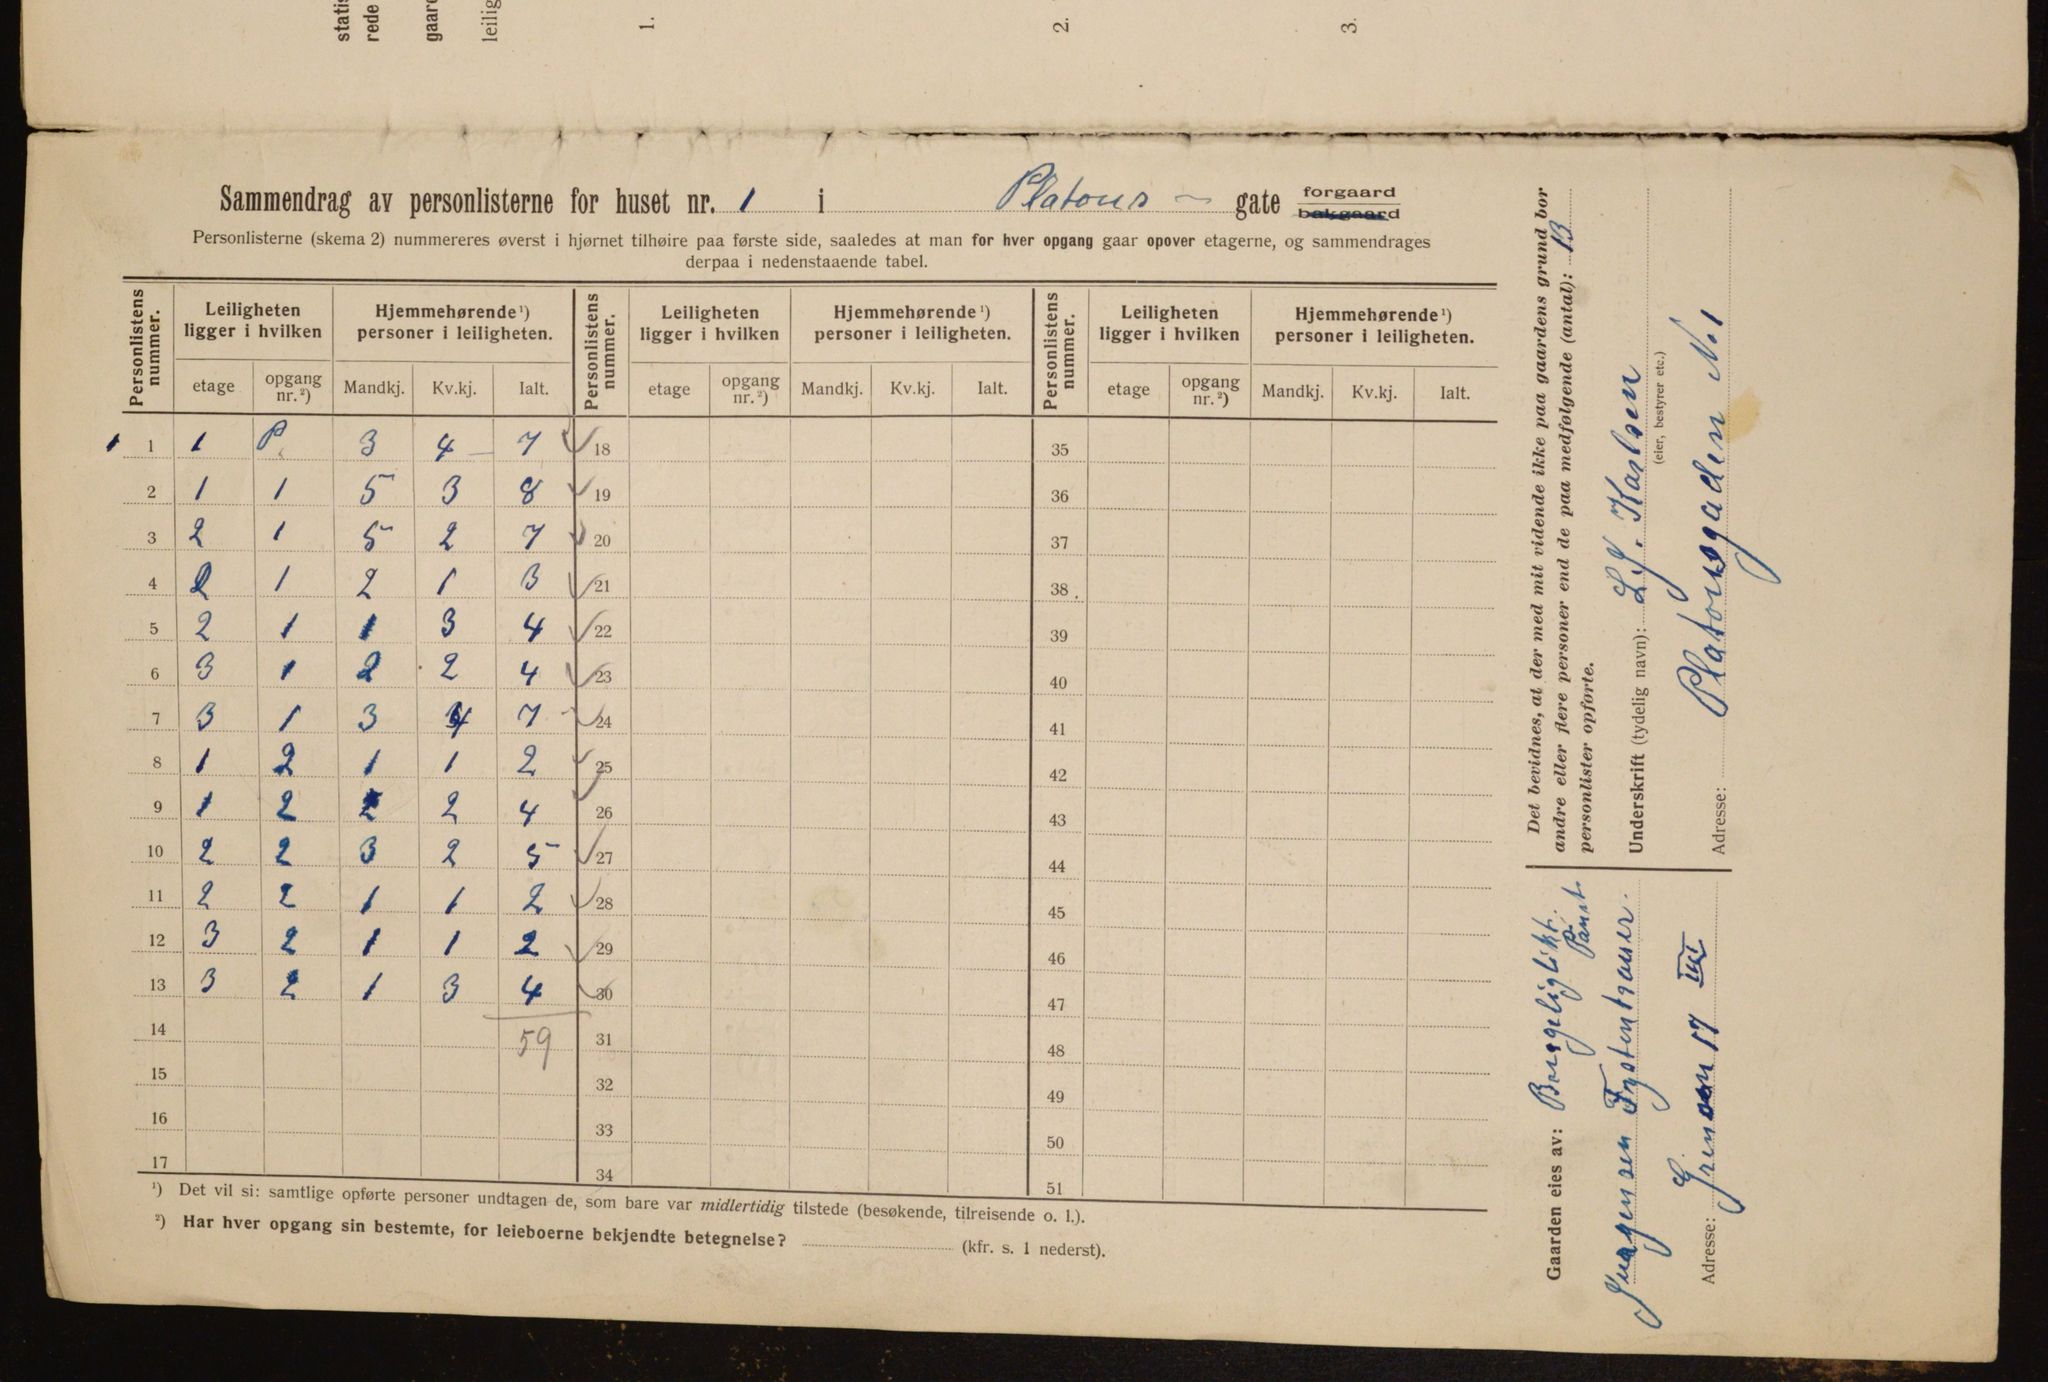 statis
rede
gaard
leilig
1.
2.
3.
Sammendrag av personlisterne for huset nr. 1 i Platous - gate forgaard bakgaard
Personlisterne (skema 2) nummereres øverst i hjørnet tilhøire paa første side, saaledes at man for hver opgang gaar opover etagerne, og sammendrages
derpaa i nedenstaaende tabel.
Personlistens nummer. Leiligheten ligger i hvilken Hjemmehørende¹) personer i leiligheten. Personlistens nummer. Leiligheten ligger i hvilken Hjemmehørende¹) personer i leiligheten. Personlistens nummer. Leiligheten ligger i hvilken Hjemmehørende¹) personer i leiligheten.
etage opgang nr.²) Mandkj. Kv.kj. Ialt. etage opgang nr.²) Mandkj. Kv.kj. Ialt. etage opgang nr.²) Mandkj. Kv.kj. Ialt.
1 1 1 P. 3 4 7 18 35
2 1 1 5 3 8 19 36
3 2 1 5 2 7 20 37
4 2 1 2 1 3 21 38
5 2 1 1 3 4 22 39
6 3 1 2 2 4 23 40
7 3 1 3 4 7 24 41
8 1 2 1 1 2 25 42
9 1 2 2 2 4 26 43
10 2 2 3 2 5 27 44
11 2 2 1 1 2 28 45
12 3 2 1 1 2 29 46
13 3 2 1 3 4 30 47
14 59 31 48
15 32 49
16 33 50
17 34 51
¹) Det vil si: samtlige opførte personer undtagen de, som bare var midlertidig tilstede (besøkende, tilreisende o. l.).
²) Har hver opgang sin bestemte, for leieboerne bekjendte betegnelse? (kfr. s. 1 nederst).
Det bevidnes, at der med mit vidende ikke paa gaardens grund bor
andre eller flere personer end de paa medfølgende (antal): 13
personlister opførte.
Underskrift (tydelig navn): L. J. Karlsen
(eier, bestyrer etc.)
Adresse: Platousgaden No 1
Gaarden eies av:
Adresse: 17 III